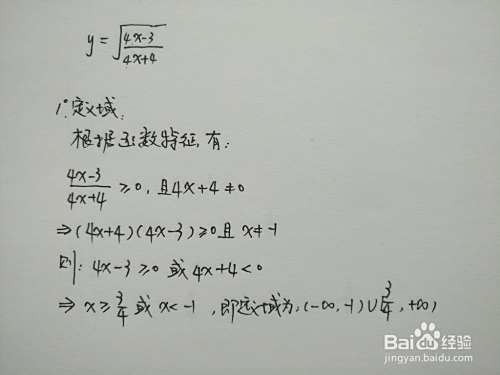 y=√((4x-3)/(4x+4))
1°.定义域:
根据函数特征,有:
(4x-3)/(4x+4) ≥0,且4x+4≠0
⇒(4x+4)(4x-3)≥0且 x≠-1
则:4x-3≥0 或4x+4<0
⇒ x≥3/4 或 x<-1 ,即定义域为:(-∞,-1)∪[3/4,+∞)
Baidu经验
jingyan.baidu.com